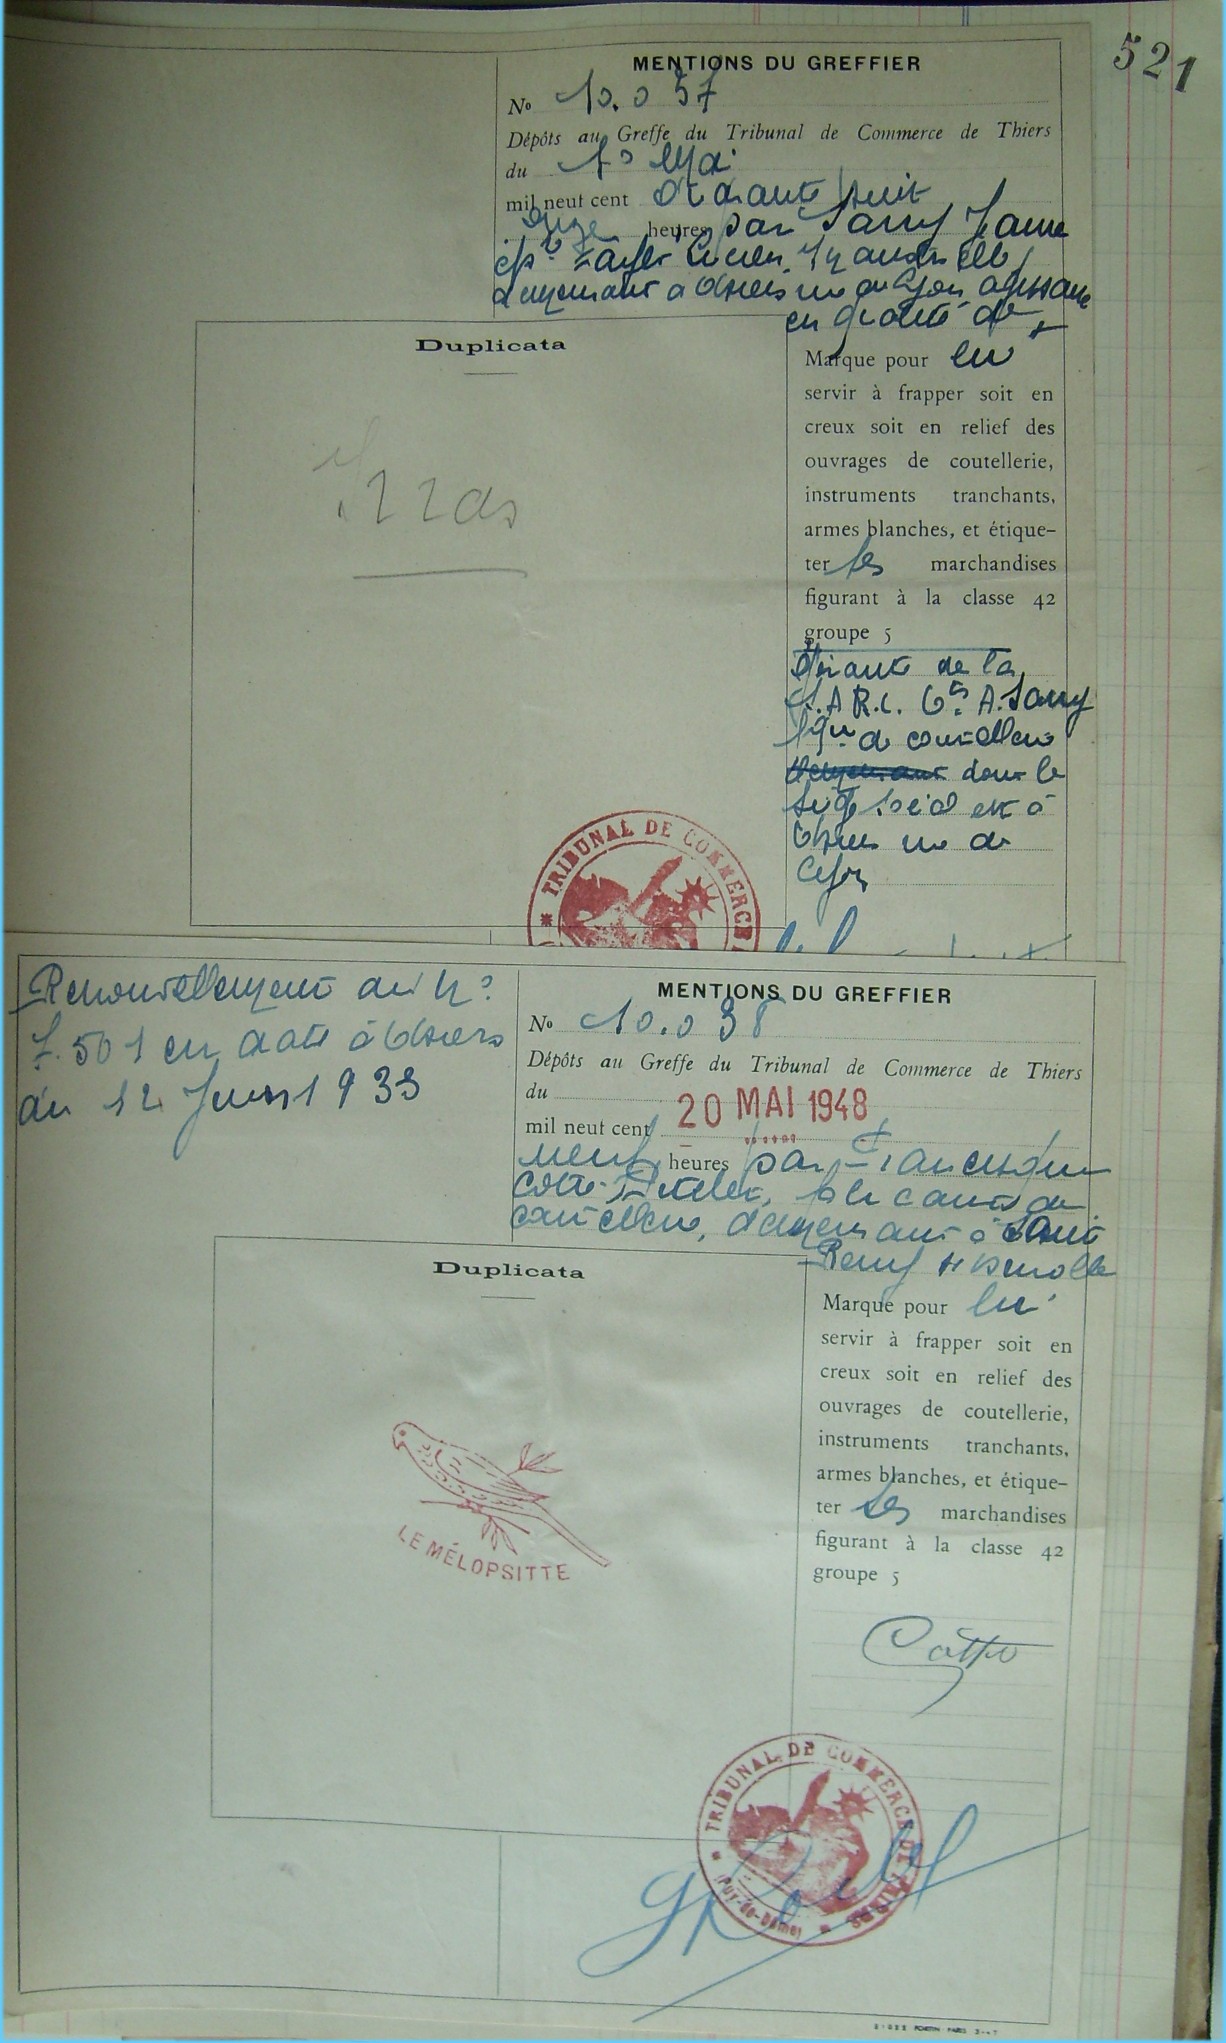 521
MENTIONS DU GREFFIER
No 10.037
Dépôts au Greffe du Tribunal de Commerce de Thiers
du Mai
mil neuf cent quarante huit
onze heures par Sarry Jeanne
Lucien
demeurant à Thiers rue de Lyon agissant
en qualité de
Duplicata
Marque pour lui
servir à frapper soit en
creux soit en relief des
ouvrages de coutellerie,
instruments tranchants,
armes blanches, et étique-
ter ses marchandises
figurant à la classe 42
groupe 5
Gérante de la
S.A.R.L. Ets A. Sarry
de coutellerie
dont le
siège social est à
Thiers rue de
Lyon
TRIBUNAL DE COMMERCE
Renouvellement du No
7.501 en date à Thiers
du 12 Juin 1933
MENTIONS DU GREFFIER
No 10.038
Dépôts au Greffe du Tribunal de Commerce de Thiers
du 20 MAI 1948
mil neuf cent
neuf heures par Francisque
Cotte fabricant de
coutellerie, demeurant à Saint
Remy
Duplicata
Marque pour lui
servir à frapper soit en
creux soit en relief des
ouvrages de coutellerie,
instruments tranchants,
armes blanches, et étique-
ter ses marchandises
figurant à la classe 42
groupe 5
LE MÉLOPSITTE
Cotte
TRIBUNAL DE COMMERCE DE THIERS
(PUY-de-Dôme)